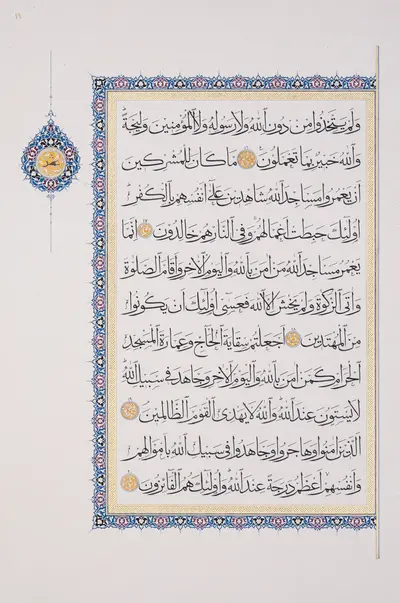 وَلَمْ يَتَّخِذُوا مِنْ دُونِ اللَّهِ وَلَا رَسُولِهِ وَلَا الْمُؤْمِنِينَ وَلِيجَةً
وَاللَّهُ خَبِيرٌ بِمَا تَعْمَلُونَ مَا كَانَ لِلْمُشْرِكِينَ
أَنْ يَعْمُرُوا مَسَاجِدَ اللَّهِ شَاهِدِينَ عَلَى أَنْفُسِهِمْ بِالْكُفْرِ
أُولَئِكَ حَبِطَتْ أَعْمَالُهُمْ وَفِي النَّارِ هُمْ خَالِدُونَ إِنَّمَا
يَعْمُرُ مَسَاجِدَ اللَّهِ مَنْ آمَنَ بِاللَّهِ وَالْيَوْمِ الْآخِرِ وَأَقَامَ الصَّلَوٰةَ
وَآتَى الزَّكَوٰةَ وَلَمْ يَخْشَ إِلَّا اللَّهَ فَعَسَى أُولَئِكَ أَنْ يَكُونُوا
مِنَ الْمُهْتَدِينَ أَجَعَلْتُمْ سِقَايَةَ الْحَاجِّ وَعِمَارَةَ الْمَسْجِدِ
الْحَرَامِ كَمَنْ آمَنَ بِاللَّهِ وَالْيَوْمِ الْآخِرِ وَجَاهَدَ فِي سَبِيلِ اللَّهِ
لَا يَسْتَوُونَ عِنْدَ اللَّهِ وَاللَّهُ لَا يَهْدِي الْقَوْمَ الظَّالِمِينَ
الَّذِينَ آمَنُوا وَهَاجَرُوا وَجَاهَدُوا فِي سَبِيلِ اللَّهِ بِأَمْوَالِهِمْ
وَأَنْفُسِهِمْ أَعْظَمُ دَرَجَةً عِنْدَ اللَّهِ وَأُولَئِكَ هُمُ الْفَائِزُونَ